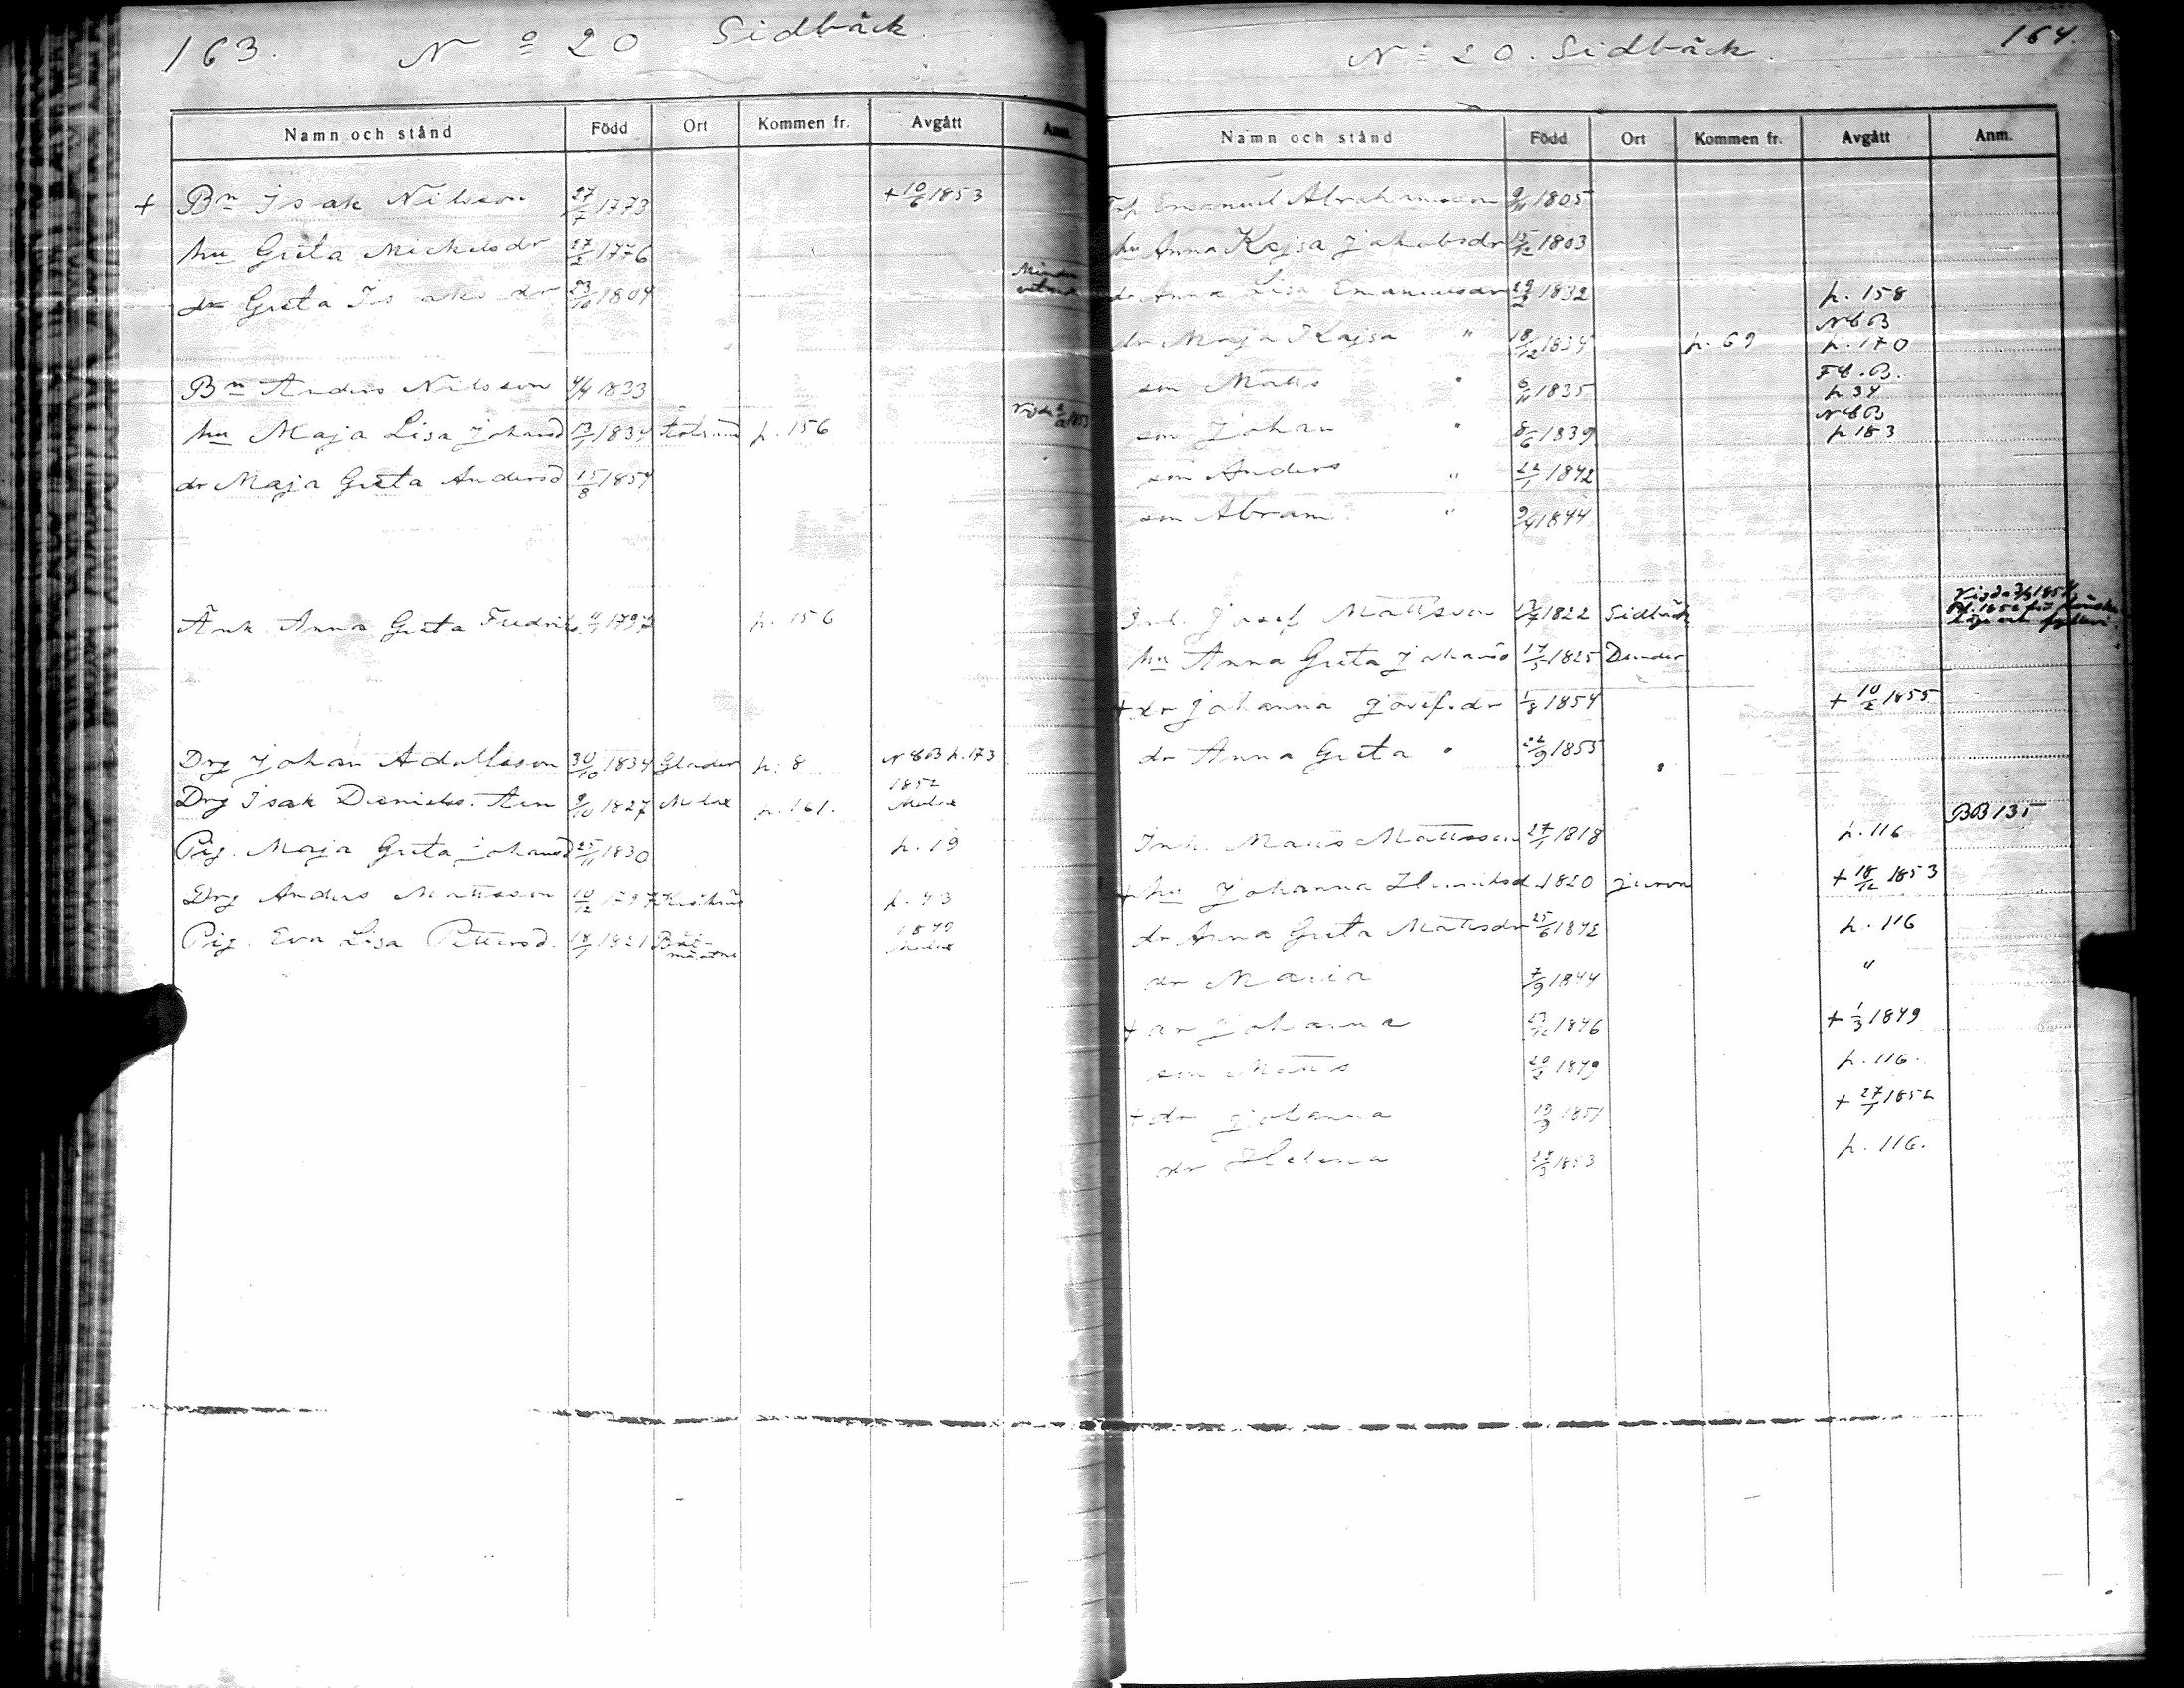 163. No 20 Sidbäck
Namn och stånd Född Ort Kommen fr. Avgått Anm.
+ Bn Isak Nilsson 27/7 1773 + 10/6 1853
hu Greta Mickelsdr 27/2 1776
dr Greta Isaksdr 23/10 1804
Bn Anders Nilsson 4/4 1833
hu Maja Lisa Johansd 13/1 1834 p. 156
dr Maja Greta Andersd 15/8 1854
Änk. Anna Greta 1797 p. 156
Drg Johan Adolfsson 30/10 1834 p. 8 N & B p. 173
Drg Isak Daniels. 9/10 1827 p. 161. 1852
Pig. Maja Greta Johansd 25/11 1830 p. 19
Drg Anders Mattsson 10/12 p. 43
Pig. Eva Lisa Pettersd. 18/1 1821
N: 20. Sidbäck. 164.
Namn och stånd Född Ort Kommen fr. Avgått Anm.
Emanuel Abrahamsson 9/11 1805
hu Anna Kajsa Jakobsdr 1803
dr Anna Lisa Emanuelsdr 29/2 1832 p. 158
dr Maja Kajsa " 18/12 1834 p. 69 N & B p. 170
son Matts " 1835 F & B. p 34
son Johan " 8/6 1839 N & B p 183
son Anders " 22/1 1842
son Abram " 9/4 1844
Inh. Josef Mattsson 1822 Sidbäck
hu Anna Greta Johansd 17/5 1825 Dunder
+ dr Johanna Josefsdr 1/8 1854 + 10/2 1855
dr Anna Greta " 1855
Inh. Matts Mattsson 27/1 1818 p. 116 BB 135
+ hu Johanna Henriksd. 1820 Jurva + 18/12 1853
dr Anna Greta Mattsdr 25/6 1842 p. 116
dr Maria 7/9 1844 "
+ dr Johanna 1846 + 1/3 1849
son Matts 20/2 1849 p. 116.
+ dr Johanna 19/9 1851 + 27/1 1852
dr Helena 1853 p. 116.